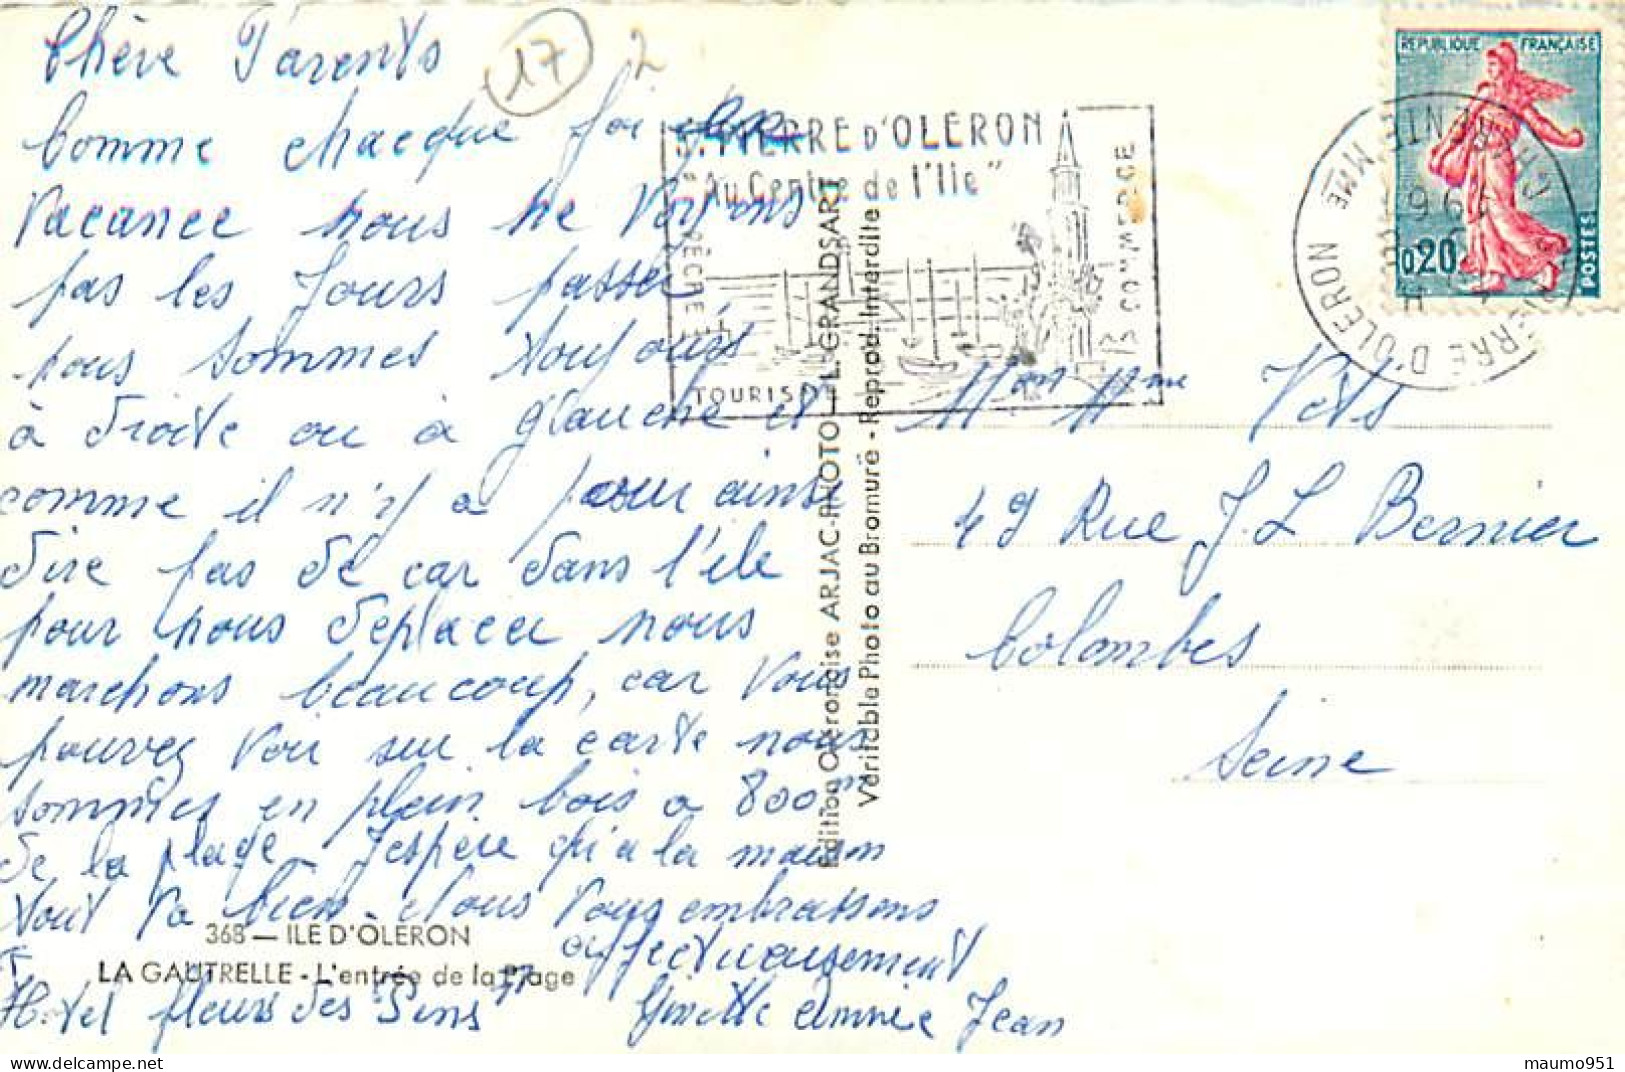 Chère Parents
17
2
Comme chacque foi
Vacance nous ne voyons
pas les Jours passer
nous sommes toujours
à droite ou à glauche et
comme il n'y a pour ainsi
dire pas de car dans l'ile
pour nous deplacer nous
marchons beaucoup, car vous
pouvez voir sur la carte nous
sommes en plein bois a 800m
de la plage Jespère qu'a la maison
tout va bien. Nous vous embrassons
affectueusement
Ginette Annie Jean
Hotel fleurs des Pins
368 — ILE D'OLÉRON
LA GAUTRELLE - L'entrée de la Plage
Edition Oléronaise ARJAC-PHOTO — L. GRANDSART
Véritable Photo au Bromure - Reprod. Interdite
ST PIERRE D'OLERON
"Au Centre de l'Ile"
TOURISME
COMMERCE
REPUBLIQUE FRANÇAISE
0,20
POSTES
PIERRE D'OLERON
Mr Mme
49 Rue J. L Bernier
Colombes
Seine
maumo951